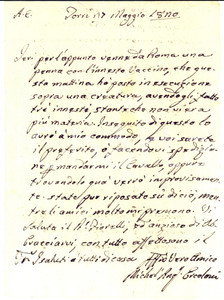 A. C. Forlì 17 Maggio 1800
Ieri per l'appunto venne da Roma una
penna con l'innesto Vaccino, che que
sta mattina hò posto in esecuzione
sopra una creatura, avendogli fatto
tre innesti, stante che non vi era
più materia. In seguito di questo io
avrò a mio commodo, e voi sarete
il preferito, o facendovi spedizione
o mandarmi il Cavallo, oppure
trovandolo quà verrò improvisamen
te. state pur riposato sù di ciò, men
tre li amici molto mi premono. Vi
saluta il Fiorelli, ed anzioso di ab
bracciarvi con tutto affetto sono il
saluti a tutti di casa Aff̃o Vero Amico
Michel Ang. Ercolani